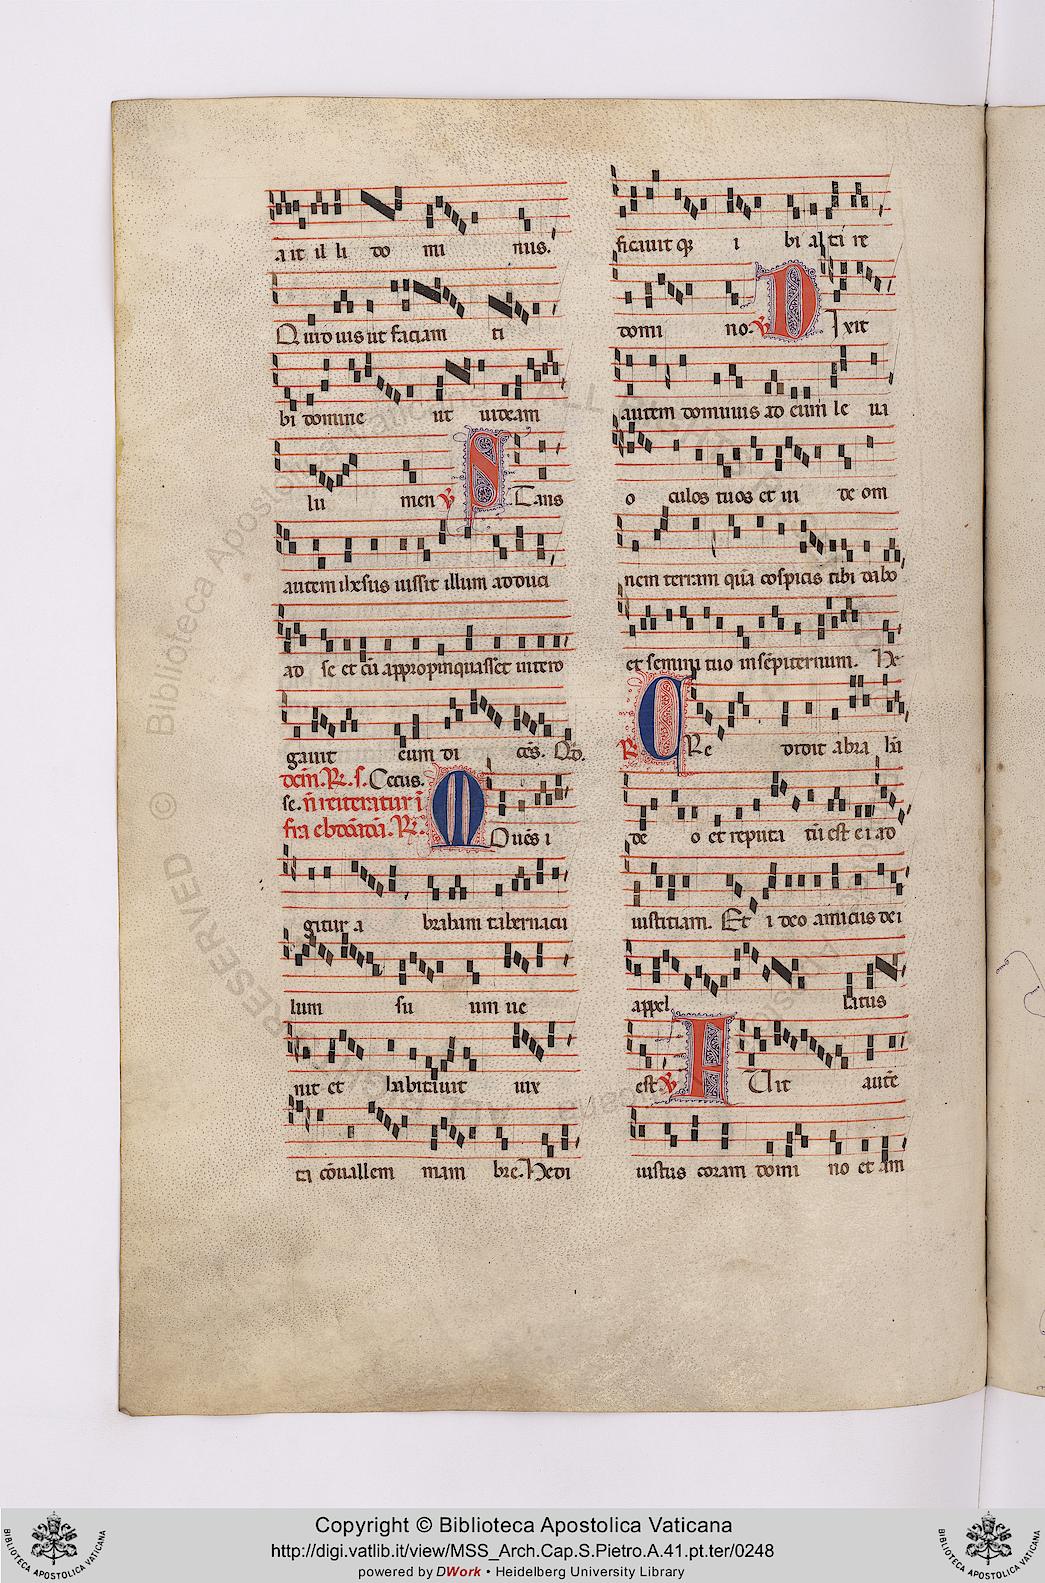 ait il li do mi nus.
Quid uis ut faciam ti
bi domine ut uideam
lu men ℣ STans
autem ihesus iussit illum adduci
ad se et cū appropinquasset intero
gauit eum di cēs. Qd̄.
℟. Cecus.
se. n̄ reiteratur ī
℟. MOuēs i
gitur a braham tabernacu
lum su um ue
nit et habitauit iux
ta cōuallem mam bre. Hedi
ficauit qȝ i bi altare
domi no. ℣ DIxit
autem dominus ad eum le ua
o culos tuos et ui de om
nem terram quā cōspicis tibi dabo
et semini tuo in sēpiternum. He
℟ CRe didit abra hā
de o et reputa tū est ei ad
iustitiam. Et ideo amicus dei
appel latus
est ℣ FUit autē
iustus coram domi no et am
Copyright © Biblioteca Apostolica Vaticana
http://digi.vatlib.it/view/MSS_Arch.Cap.S.Pietro.A.41.pt.ter/0248
powered by DWork • Heidelberg University Library